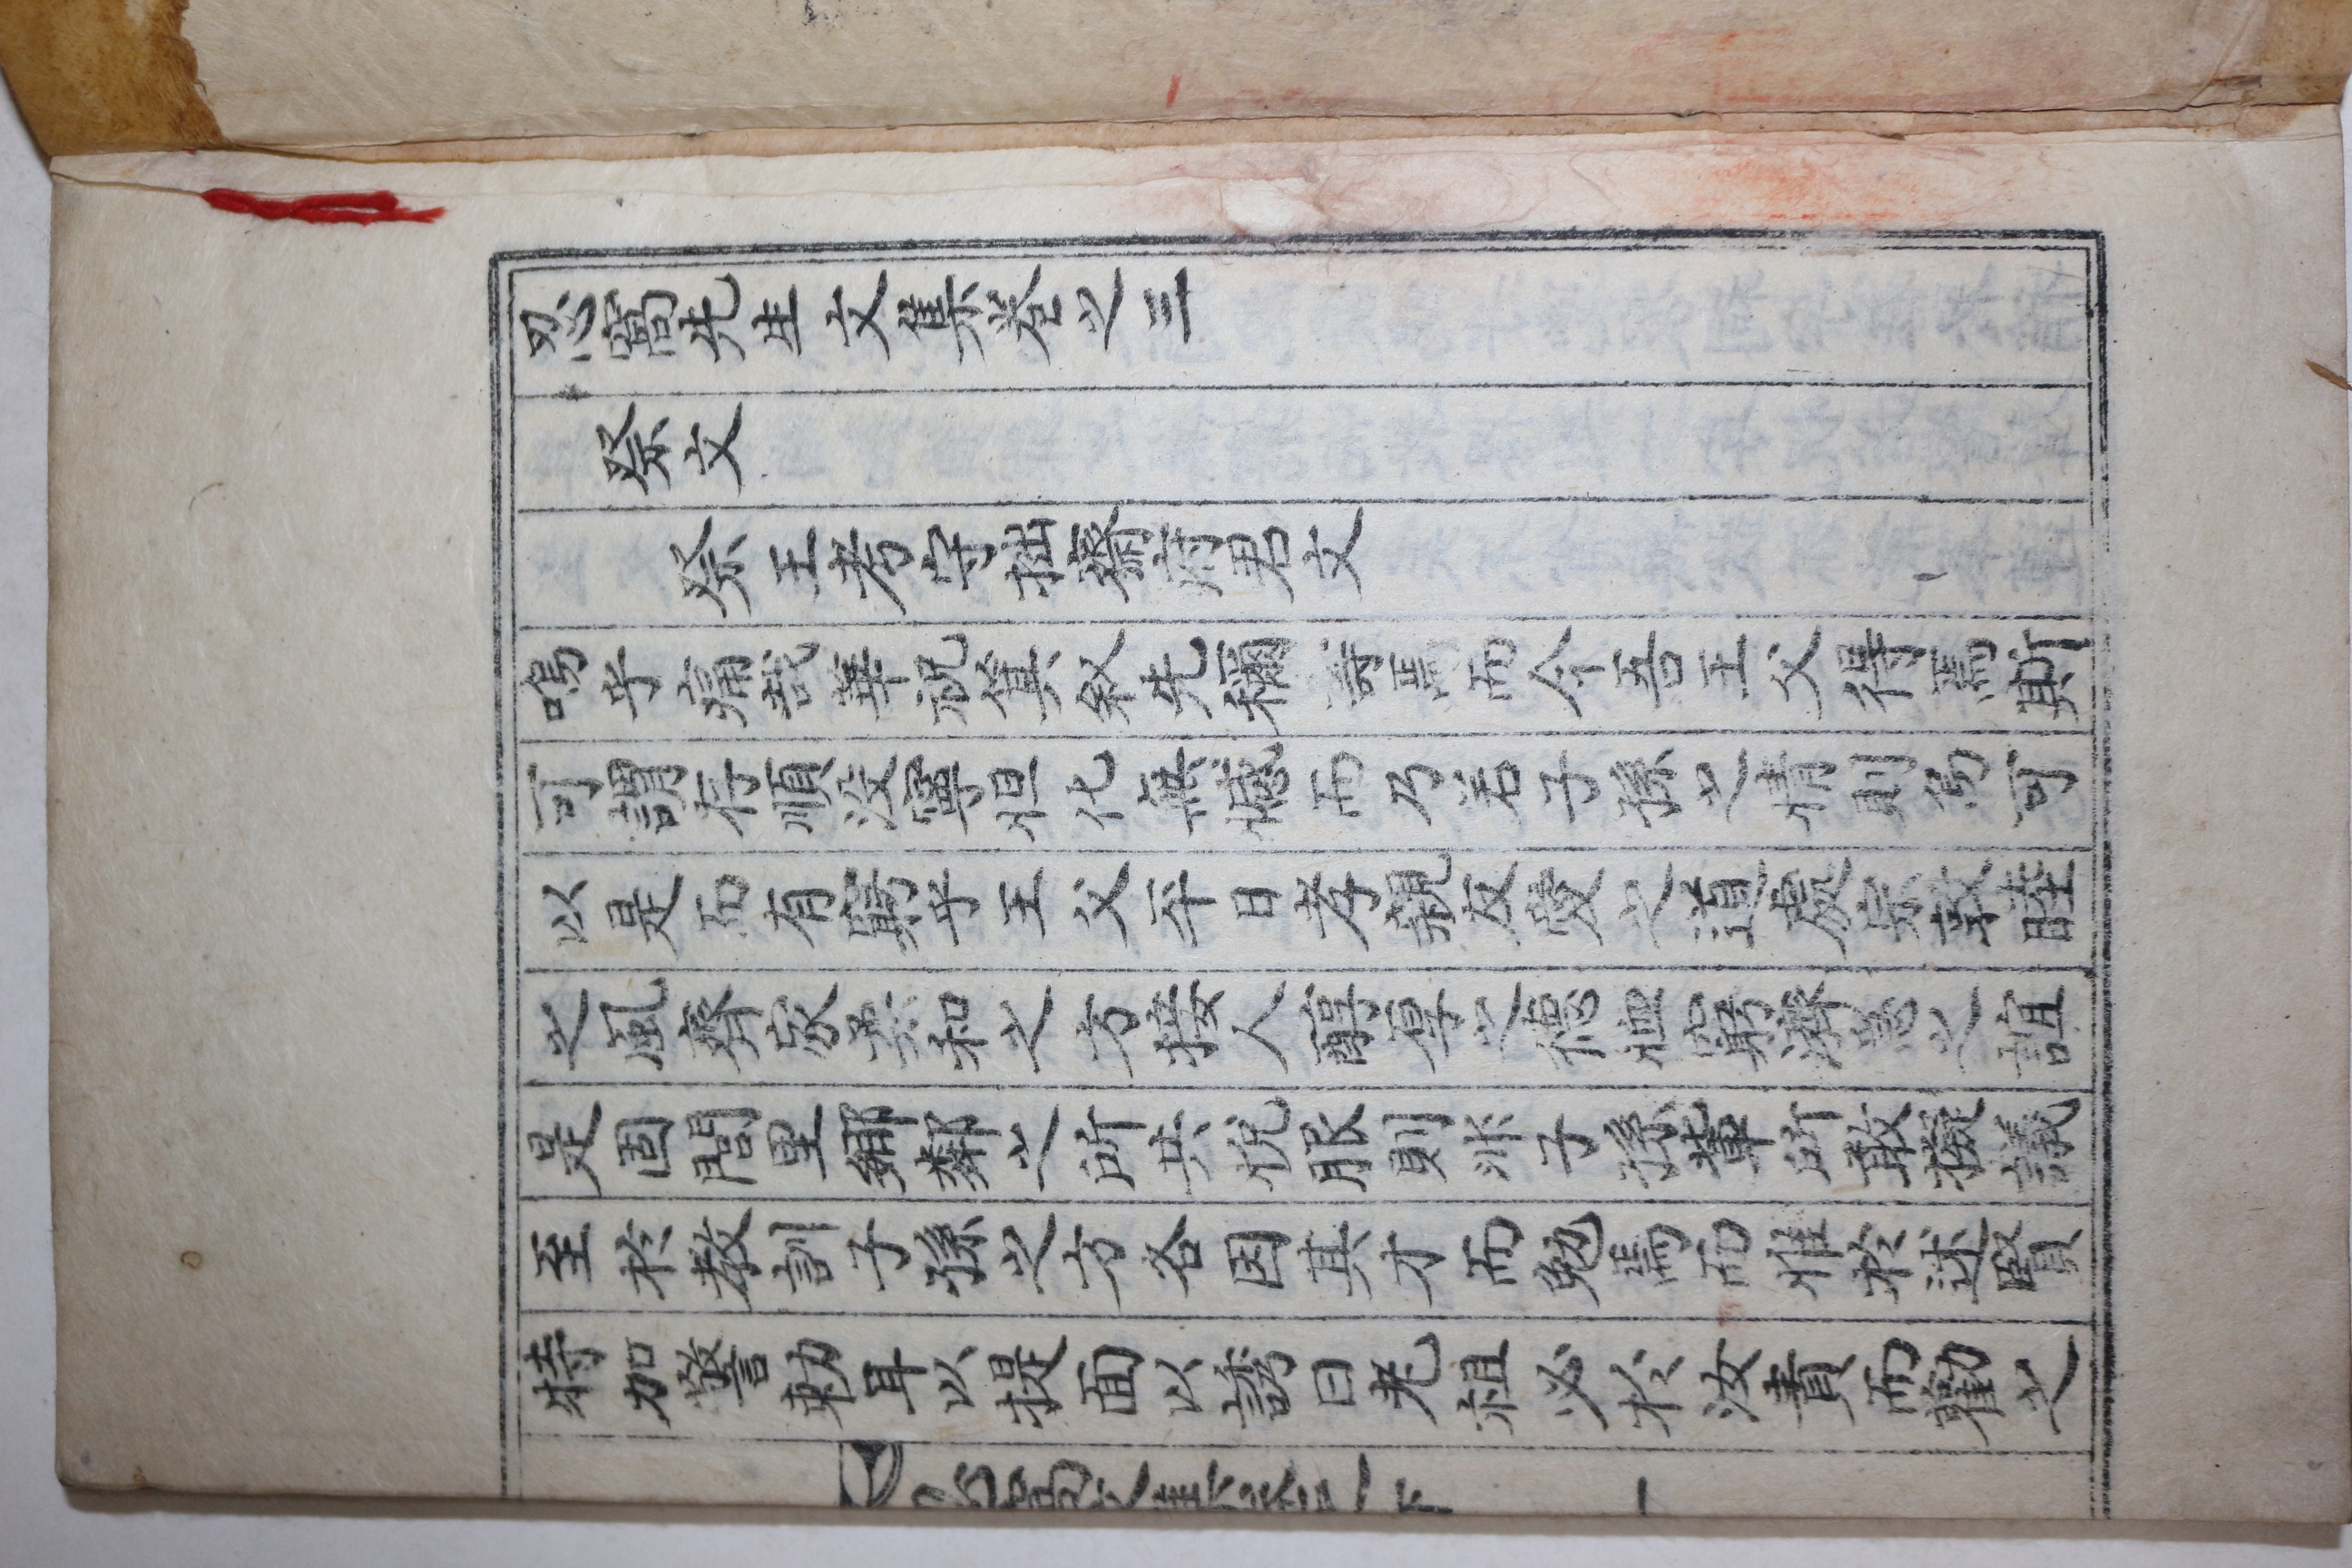 忍窩先生文集卷之三
祭文
祭王考守拙齋府君文
嗚乎痛哉華祝箕叙先稱壽焉而今吾王父得焉斯
可謂存順没寧怛化無憾而乃若子孫之情則烏可
以是而有窮乎王父平日孝親友愛之道處宗敦睦
之風齊家柔和之方接人醇厚之德恤窮濟急之誼
是固閭里鄉鄰之所共悅服則非子孫輩所敢擬議
至於教訓子孫之方各因其才而勉焉而惟於述賢
特加警勅耳以提面以誘曰老祖必於汝責而勸之
一